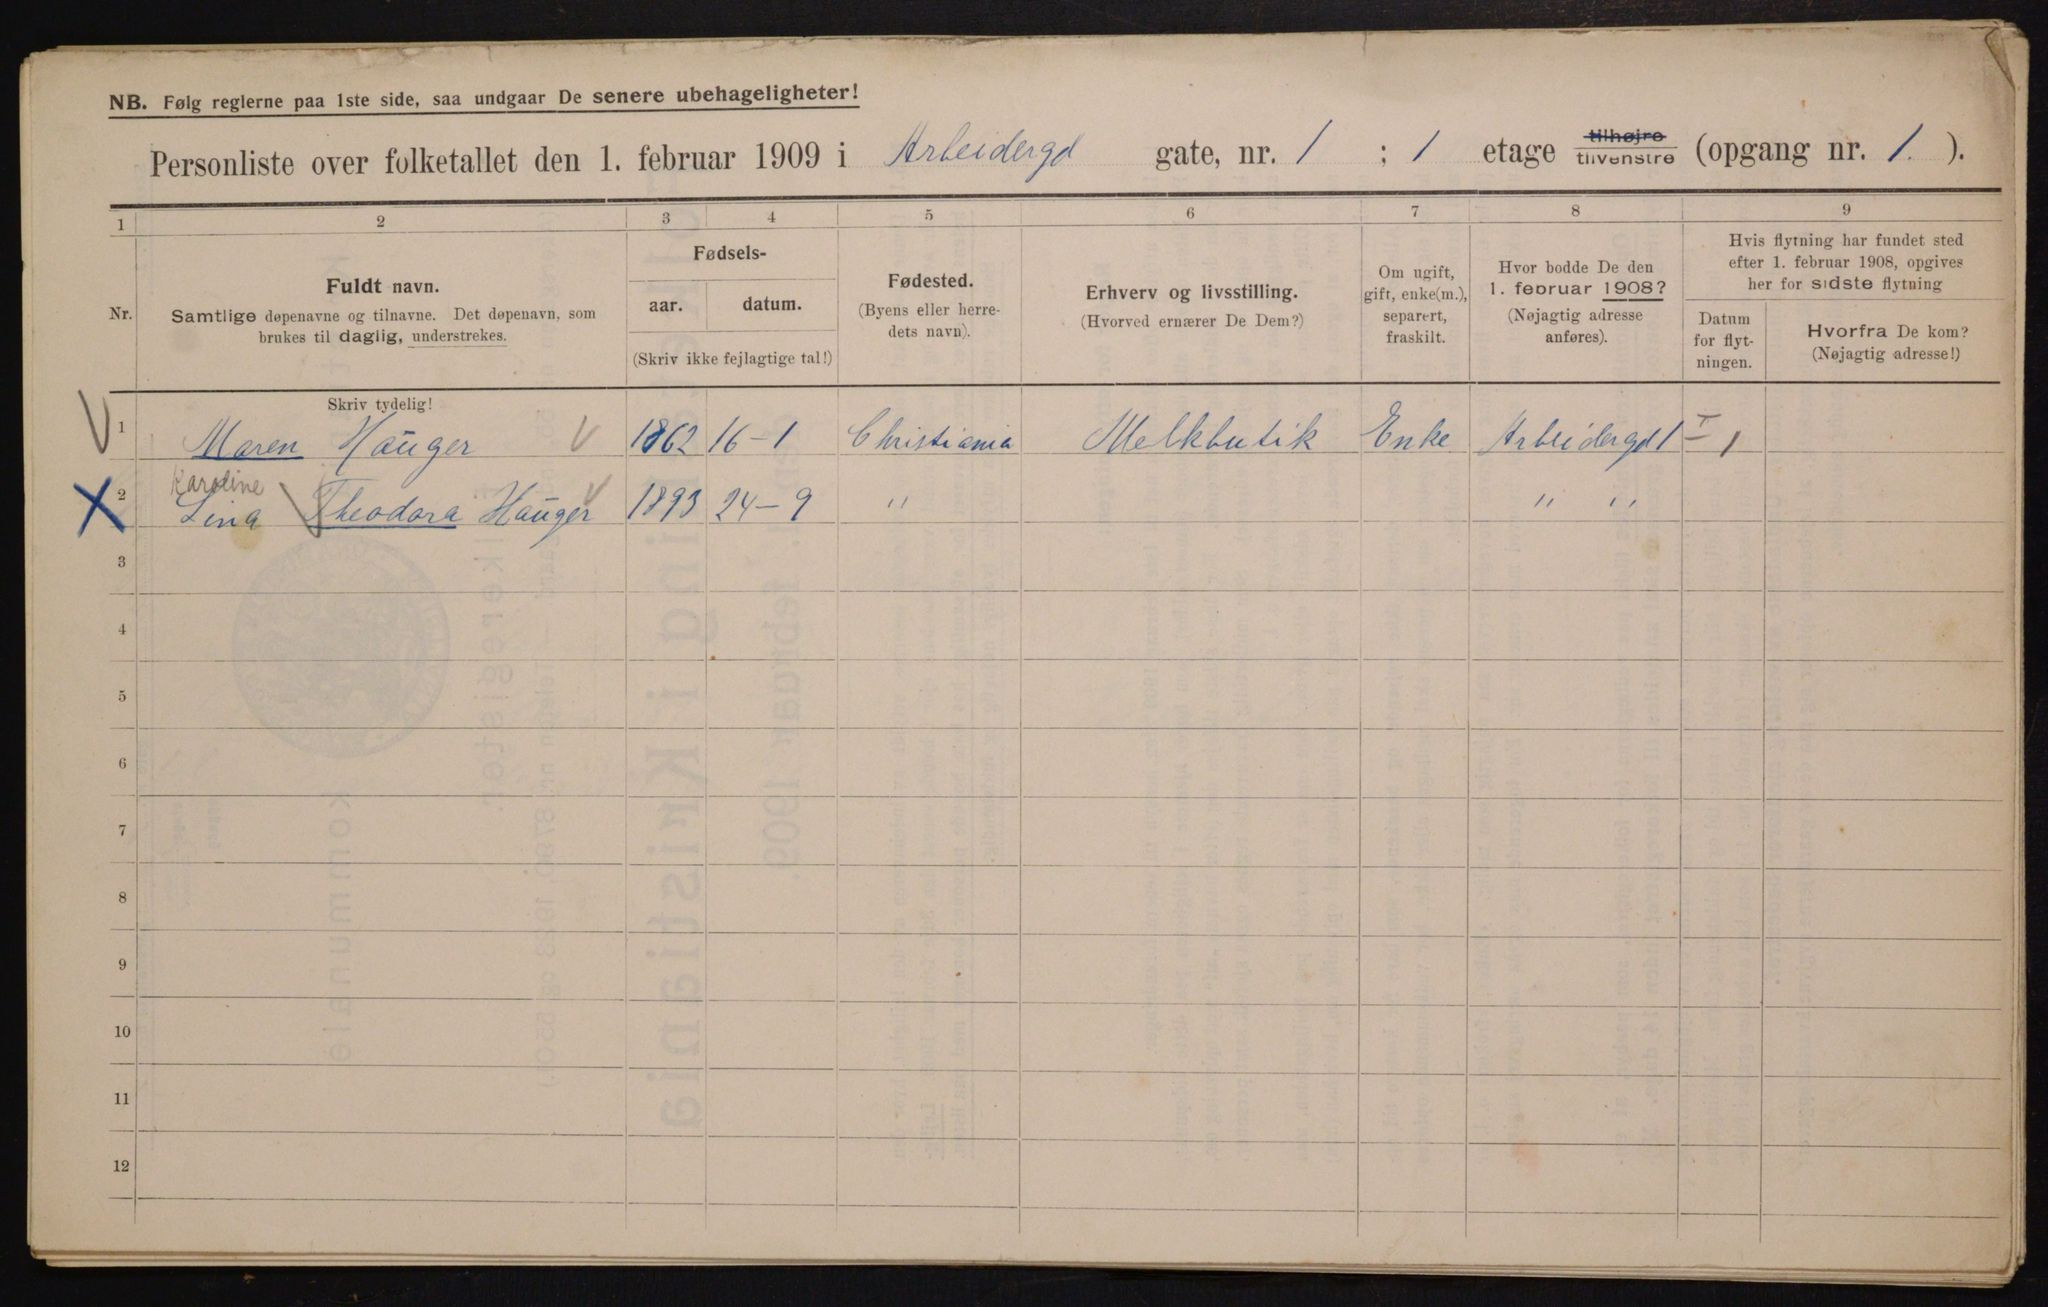 NB. Følg reglerne paa 1ste side, saa undgaar De senere ubehageligheter!
Personliste over folketallet den 1. februar 1909 i Arbeidergd gate, nr. 1 ; 1 etage tilhøjre tilvenstre (opgang nr. 1. ).
1 2 3 4 5 6 7 8 9
Nr.
Fuldt navn.
Samtlige døpenavne og tilnavne. Det døpenavn, som
brukes til daglig, understrekes.
Fødsels-
aar. datum.
(Skriv ikke fejlagtige tal!)
Fødested.
(Byens eller herre-
dets navn).
Erhverv og livsstilling.
(Hvorved ernærer De Dem?)
Om ugift,
gift, enke(m.),
separert,
fraskilt.
Hvor bodde De den
1. februar 1908?
(Nøjagtig adresse
anføres).
Hvis flytning har fundet sted
efter 1. februar 1908, opgives
her for sidste flytning
Datum
for flyt-
ningen.
Hvorfra De kom?
(Nøjagtig adresse!)
Skriv tydelig!
1 Maren Hauger 1862 16-1 Christiania Melkbutik Enke Arbeidergd 1 I - 1
Karoline
2 Lina Theodora Hauger 1893 24-9 " " "
3
4
5
6
7
8
9
10
11
12